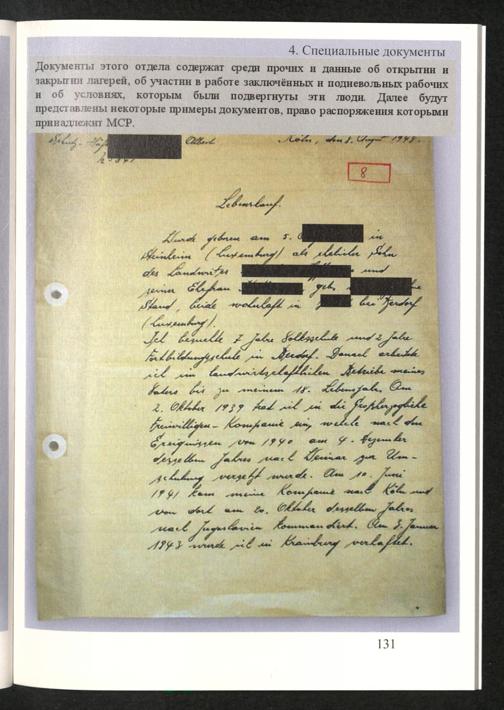 4. Специальные документы
Документы этого отдела содержат среди прочих и данные об открытии и
закрытии лагерей, об участии в работе заключённых и подневольных рабочих
и об условиях, которым были подвергнуты эти люди. Далее будут
представлены некоторые примеры документов, право распоряжения которыми
принадлежит МСР.
Albert Köln, den 8. August 1943.
8
Lebenslauf.
Wurde geboren am 5. in
Steinheim (Luxemburg) als ehelicher Sohn
des Landwirtes und
seiner Ehefrau geb.
Stand, beide wohnhaft in bei Berdorf
(Luxemburg).
Ich besuchte 7 Jahre Volksschule und 2 Jahre
Fortbildungsschule in Berdorf. Danach arbeitete
ich im landwirtschaftlichen Betriebe meines
Vaters bis zu meinem 18. Lebensjahr. Am
2. Oktober 1939 trat ich in die Großherzogliche
Freiwilligen-Kompanie ein, welche nach den
Ereignissen von 1940 am 4. Dezember
desselben Jahres nach Weimar zur Um-
schulung versetzt wurde. Am 10. Juni
1941 kam meine Kompanie nach Köln und
von dort am 20. Oktober desselben Jahres
nach Jugoslavien kommandiert. Am 8. Januar
1943 wurde ich in Krainburg verhaftet.
131